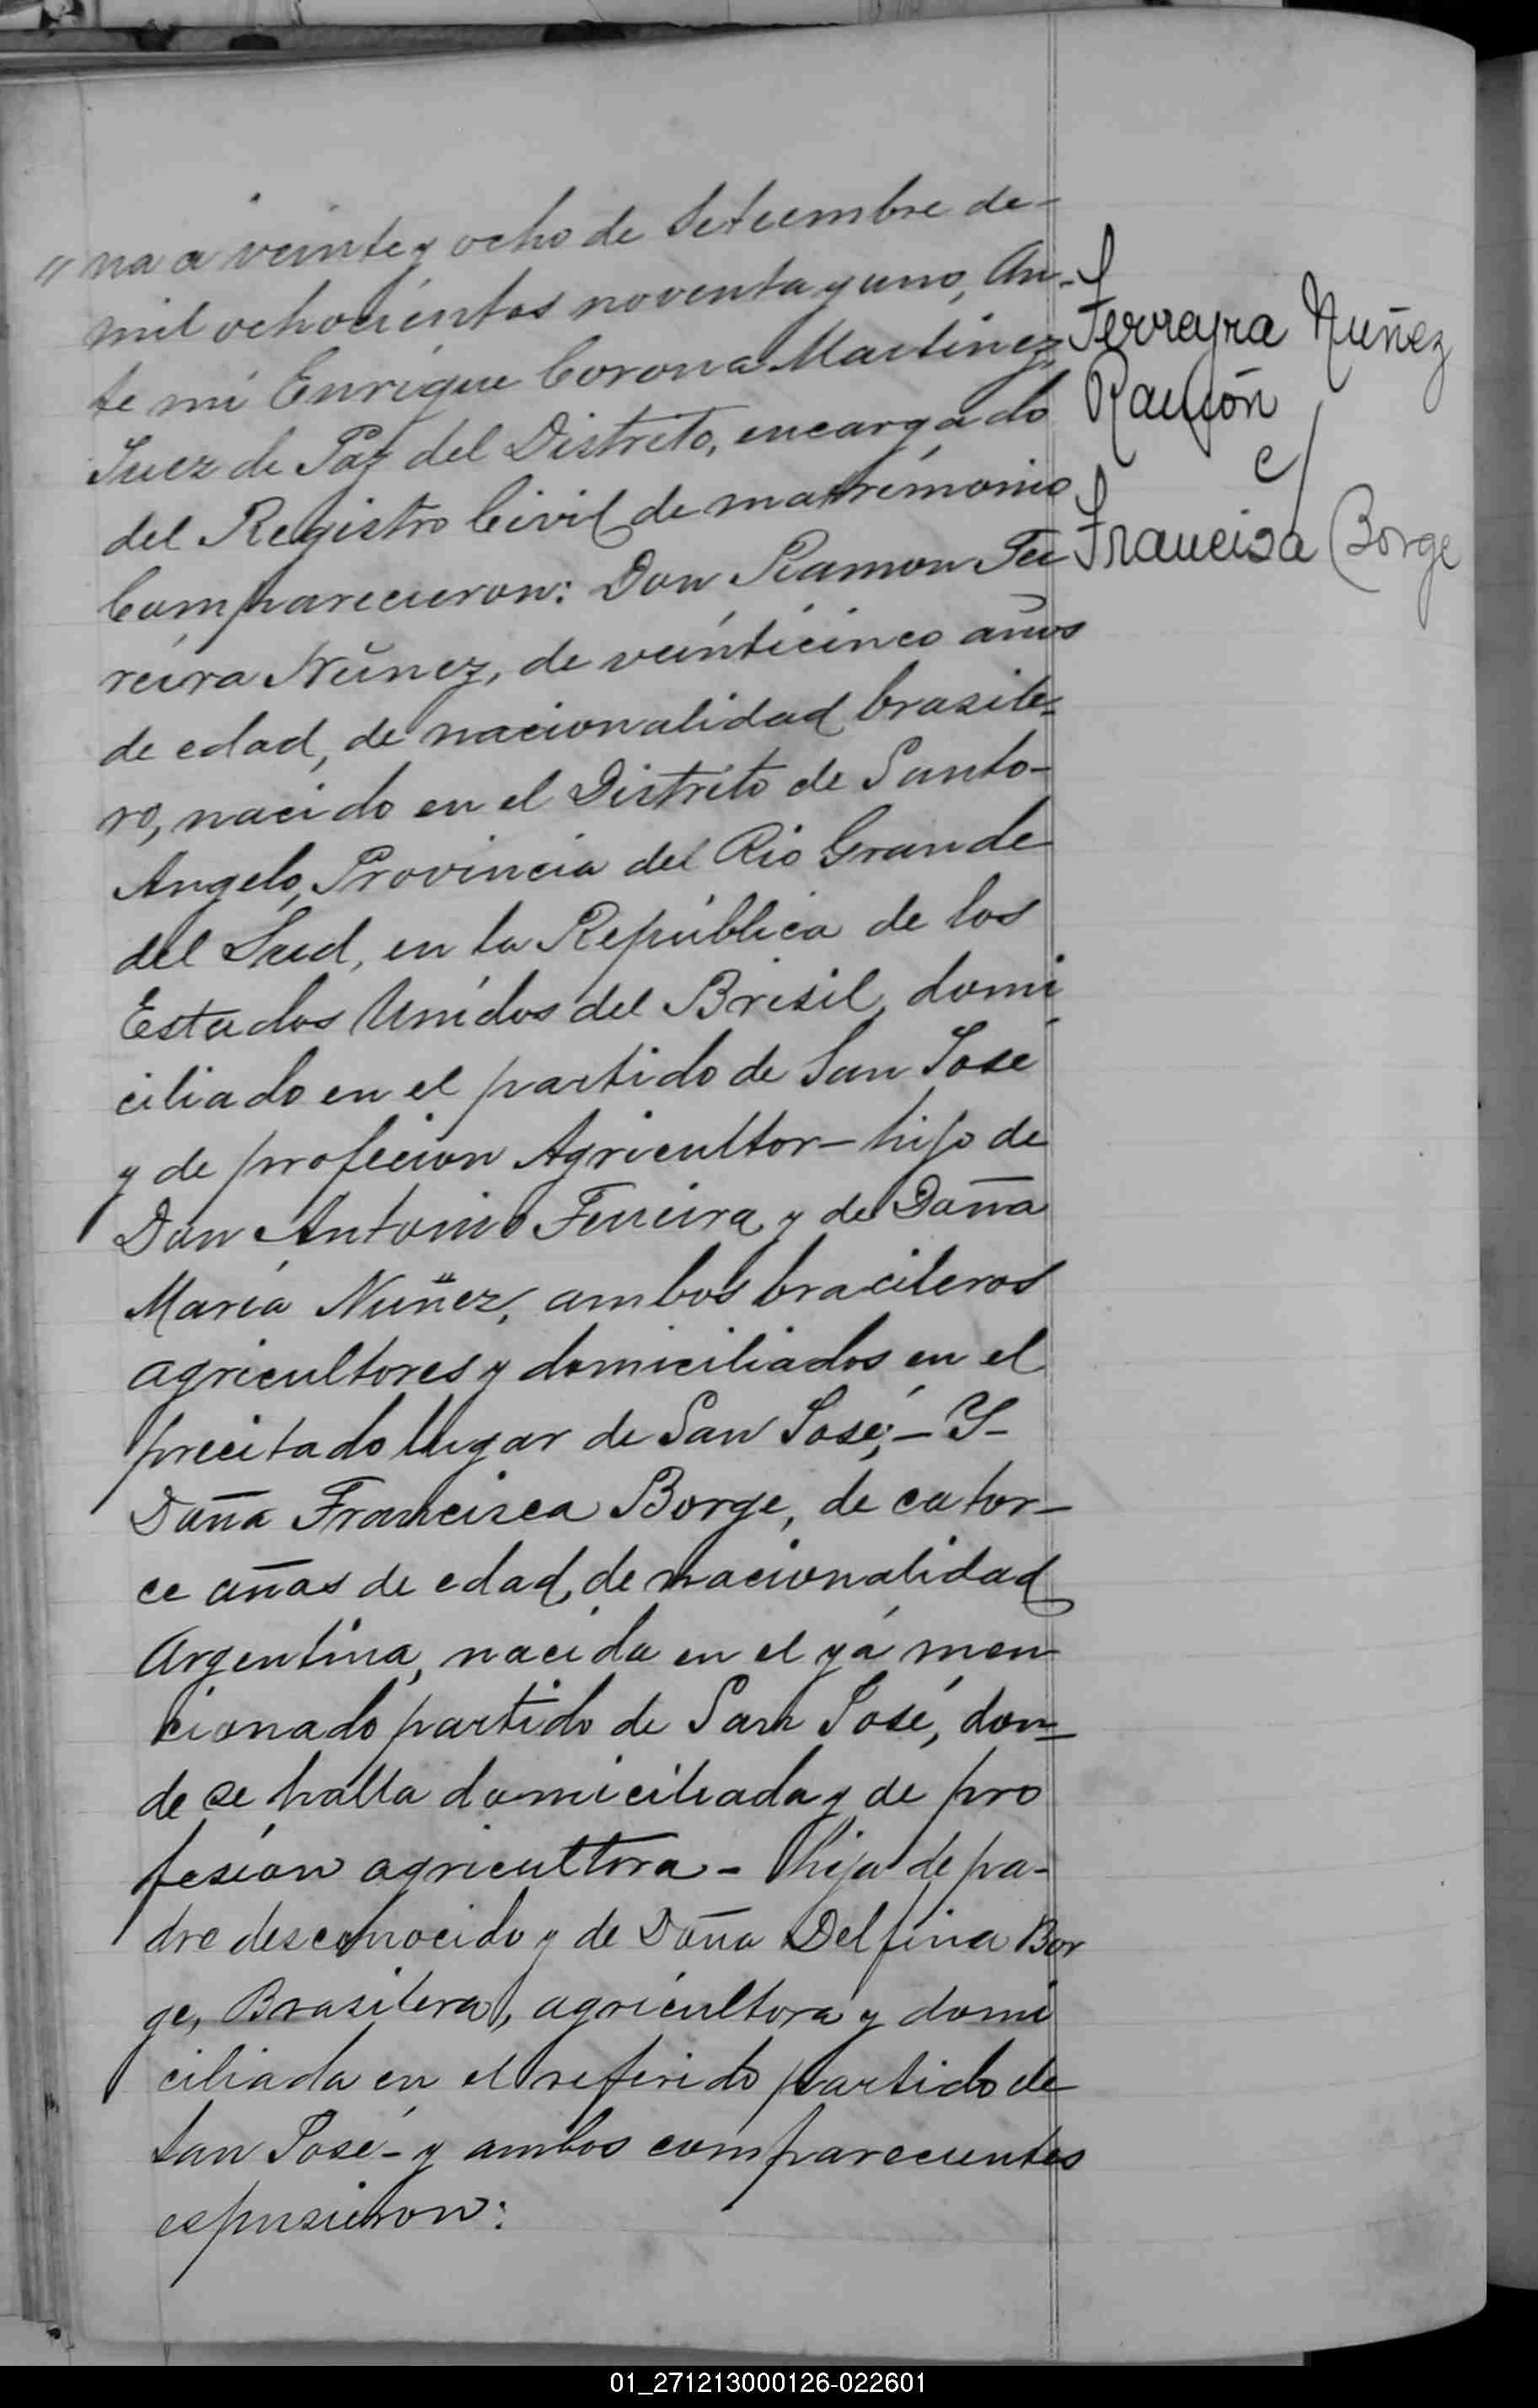 " na a veinte y ocho de Setiembre de-
mil ochocientos noventa y uno, An-
te mi Enrique Corona Martinez,
Juez de Paz del Distrito, encargado
del Registro Civil de matrimonio
Comparecieron: Don Ramon Fer
reira Nuñez, de veinticinco años
de edad, de nacionalidad brasile-
ro, nacido en el Distrito de Santo-
Angelo, Provincia del Rio Grande
del Sud, en la República de los
Estados Unidos del Brisil, domi
ciliado en el partido de San José
y de profecion Agricultor- hijo de
Don Antonio Ferreira y de Doña
María Nuñez, ambos bracileros
agricultores y domiciliados en el
precitado lugar de San José;- Y-
Doña Francisca Borge, de cator-
ce años de edad, de nacionalidad
Argentina, nacida en el yá men
cionado partido de San José, don-
de se halla domiciliada y de pro
fesión agricultora - hija de pa-
dre desconocido y de Doña Delfina Bor
ge, Brasilera, agricultora y domi
ciliada en el referido partido de
San José- y ambos comparecientes
espusieron:
Ferreyra Nuñez
Ramón
c/
Francisa Borge
01_271213000126-022601